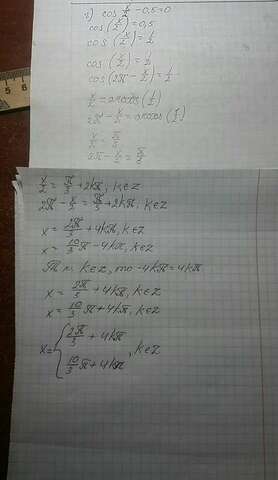 2) cos x/2 - 0,5 = 0
cos(x/2) = 0,5
cos(x/2) = 1/2
cos(x/2) = 1/2
cos(2π - x/2) = 1/2
x/2 = arccos(1/2)
2π - x/2 = arccos(1/2)
x/2 = π/3
2π - x/2 = π/3
x/2 = π/3 + 2kπ, k∈Z
2π - x/2 = π/3 + 2kπ, k∈Z
x = 2π/3 + 4kπ, k∈Z
x = 10/3 π - 4kπ, k∈Z
Т.к. k∈Z, то -4kπ = 4kπ
x = 2π/3 + 4kπ, k∈Z
x = 10/3 π + 4kπ, k∈Z
x = { 2π/3 + 4kπ
10/3 π + 4kπ , k∈Z